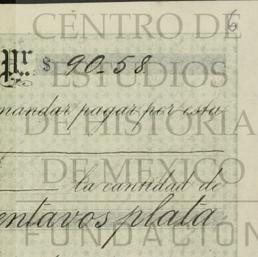 6
CENTRO DE
Pr. $ 90-58
ESTUDIOS
mandar pagar por esta
DE HISTORIA
DE MEXICO
la cantidad de
entavos plata
FUNDACIÓN